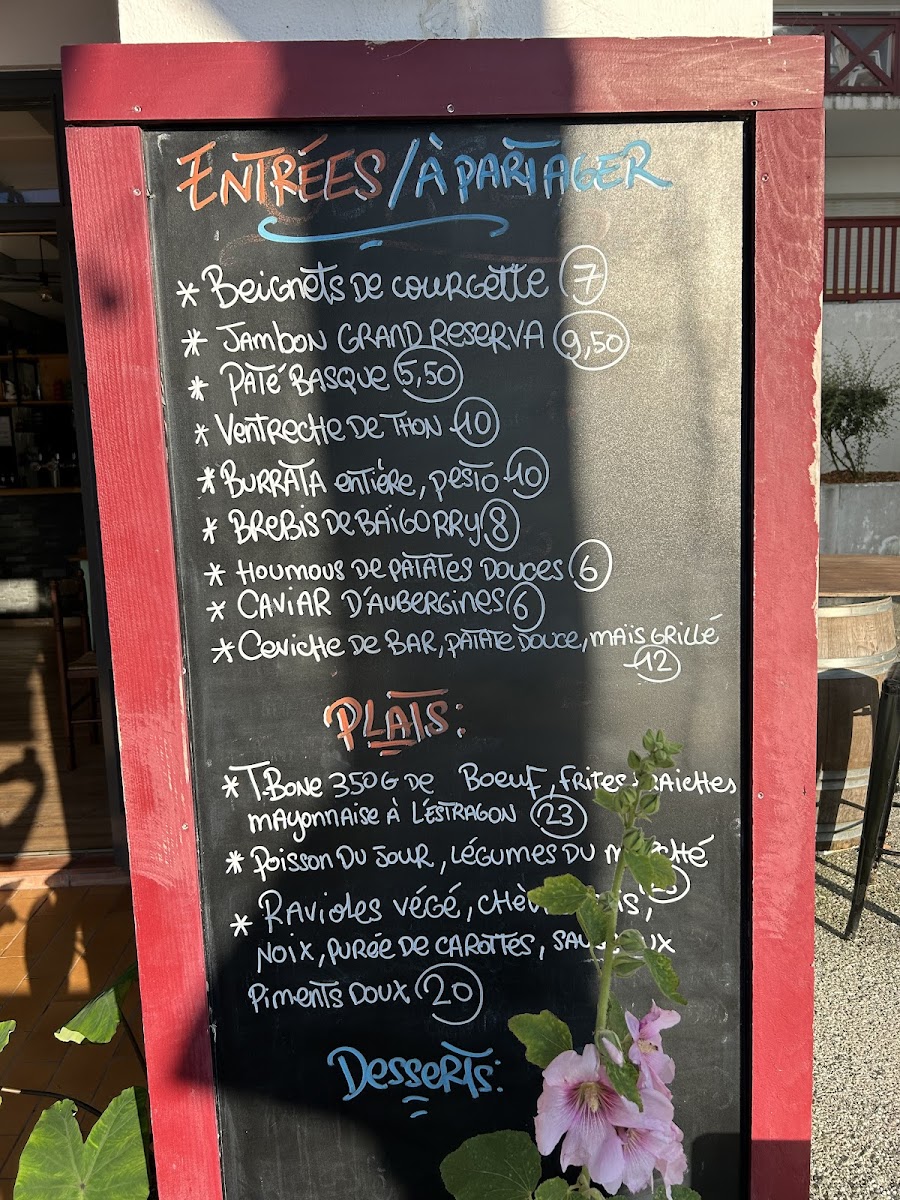 ENTRÉES / À PARTAGER
* Beignets de courgette 7
* Jambon GRAND RESERVA 9,50
* PATÉ BASQUE 5,50
* Ventreche de THON 10
* BURRATA entière, pesto 10
* BREBIS DE BAÏGORRY 8
* Houmous de PATATES DOUCES 6
* CAVIAR D'AUBERGINES 6
* Ceviche de BAR, PATATE DOUCE, MAÏS GRILLÉ
12
PLATS:
* T-Bone 350G de Boeuf, FRITES
mayonnaise à L'ESTRAGON 23
* Poisson Du JOUR, LÉGUMES DU
* RAVIOLES VÉGÉ,
NOIX, PURÉE DE CAROTTES,
PIMENTS DOUX 20
Desserts: